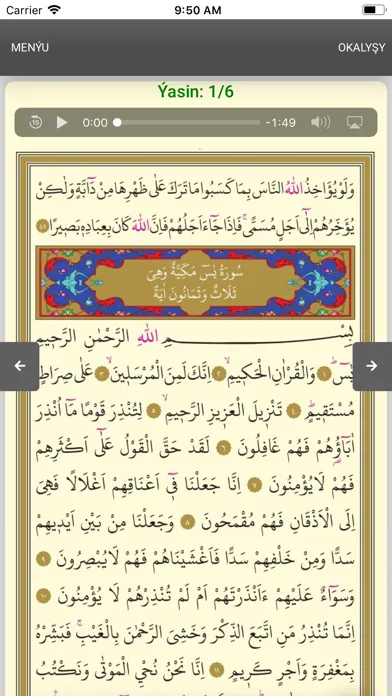 Carrier 9:50 AM
MENÝU OKALYŞY
Ýasin: 1/6
15 0:00 -1:49
وَلَوْ يُؤَاخِذُ اللّٰهُ النَّاسَ بِمَا كَسَبُوا مَا تَرَكَ عَلٰى ظَهْرِهَا مِنْ دَٓابَّةٍ وَلٰكِنْ
يُؤَخِّرُهُمْ اِلٰٓى اَجَلٍ مُسَمًّىۚ فَاِذَا جَٓاءَ اَجَلُهُمْ فَاِنَّ اللّٰهَ كَانَ بِعِبَادِه۪ بَص۪يرًا ٤٥
سُورَةُ يٰسٓ مَكِّيَّةٌ وَهِيَ
ثَلَاثٌ وَثَمَانُونَ اٰيَةً
بِسْــــمِ اللّٰهِ الرَّحْمٰنِ الرَّح۪يمِ
يٰسٓۜ ١ وَالْقُرْاٰنِ الْحَك۪يمِۙ ٢ اِنَّكَ لَمِنَ الْمُرْسَل۪ينَۙ ٣ عَلٰى صِرَاطٍ
مُسْتَق۪يمٍۜ ٤ تَنْز۪يلَ الْعَز۪يزِ الرَّح۪يمِۙ ٥ لِتُنْذِرَ قَوْمًا مَٓا اُنْذِرَ
اٰبَٓاؤُ۬هُمْ فَهُمْ غَافِلُونَ ٦ لَقَدْ حَقَّ الْقَوْلُ عَلٰٓى اَكْثَرِهِمْ
فَهُمْ لَا يُؤْمِنُونَ ٧ اِنَّا جَعَلْنَا ف۪ٓي اَعْنَاقِهِمْ اَغْلَالًا فَهِيَ
اِلَى الْاَذْقَانِ فَهُمْ مُقْمَحُونَ ٨ وَجَعَلْنَا مِنْ بَيْنِ اَيْد۪يهِمْ
سَدًّا وَمِنْ خَلْفِهِمْ سَدًّا فَاَغْشَيْنَاهُمْ فَهُمْ لَا يُبْصِرُونَ ٩
وَسَوَٓاءٌ عَلَيْهِمْ ءَاَنْذَرْتَهُمْ اَمْ لَمْ تُنْذِرْهُمْ لَا يُؤْمِنُونَ ١٠
اِنَّمَا تُنْذِرُ مَنِ اتَّبَعَ الذِّكْرَ وَخَشِيَ الرَّحْمٰنَ بِالْغَيْبِۚ فَبَشِّرْهُ
بِمَغْفِرَةٍ وَاَجْرٍ كَر۪يمٍ ١١ اِنَّا نَحْنُ نُحْيِ الْمَوْتٰى وَنَكْتُبُ